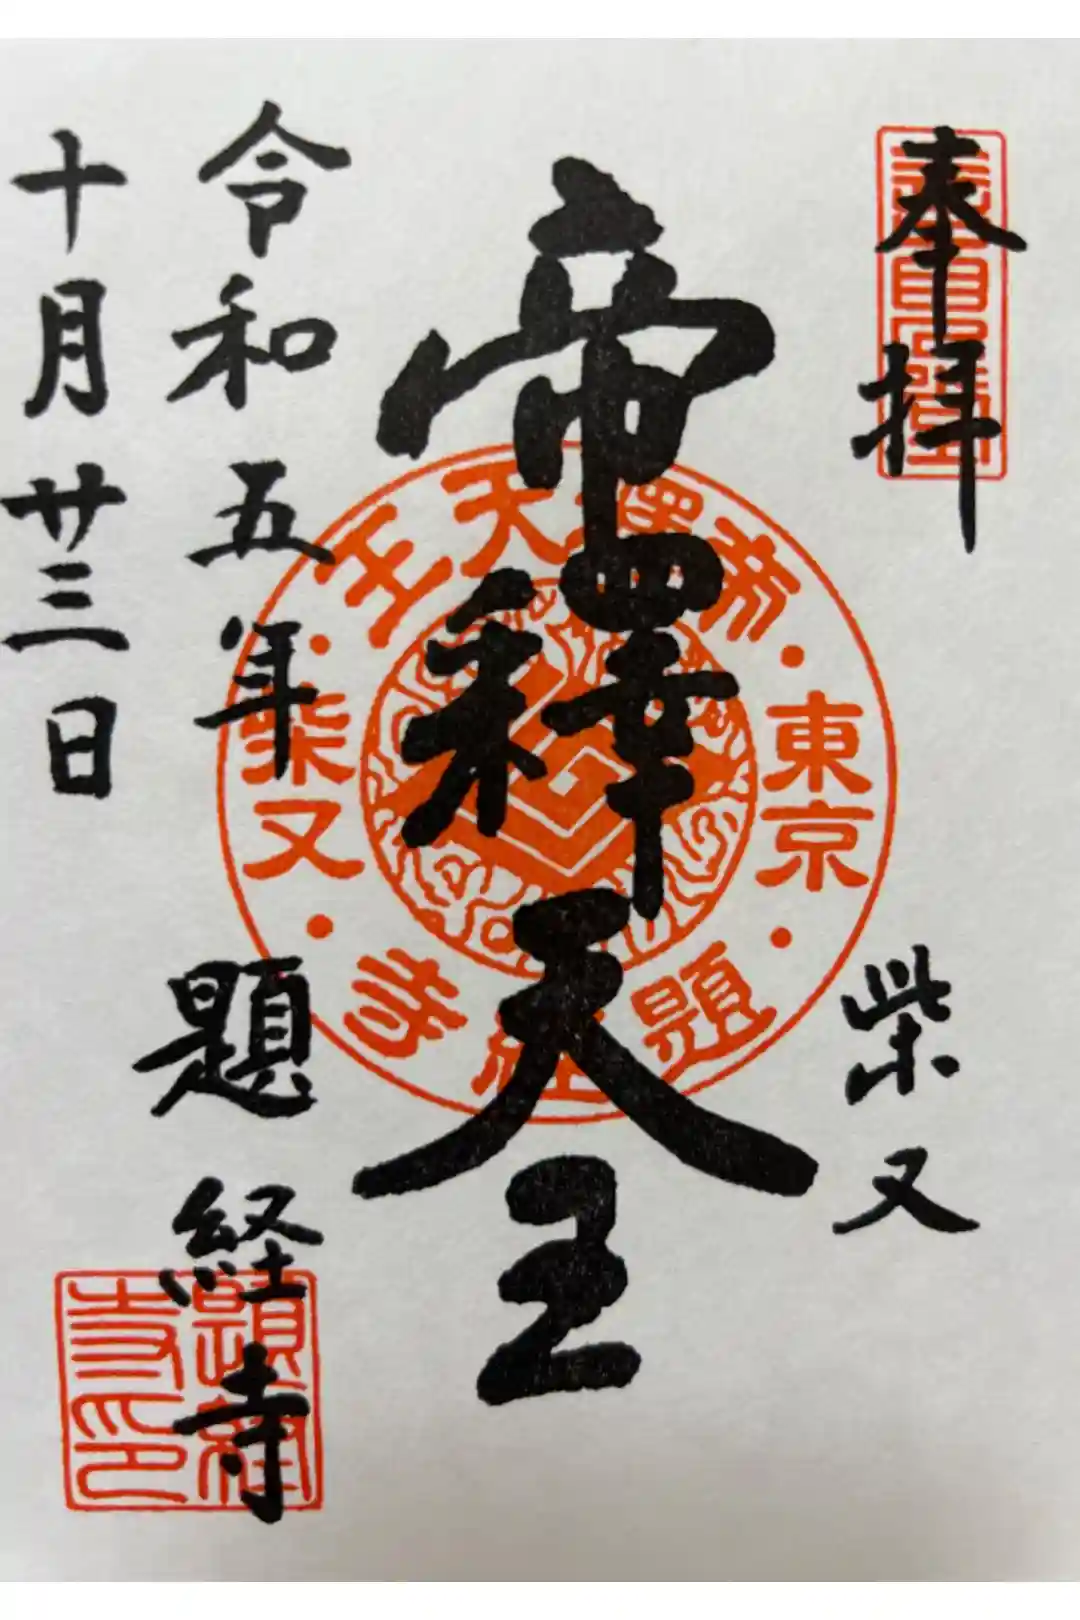 奉拝
柴又
帝釋天王
令和五年
題経寺
十月廿三日
帝釋天王・東京・題経寺・柴又
題経寺印